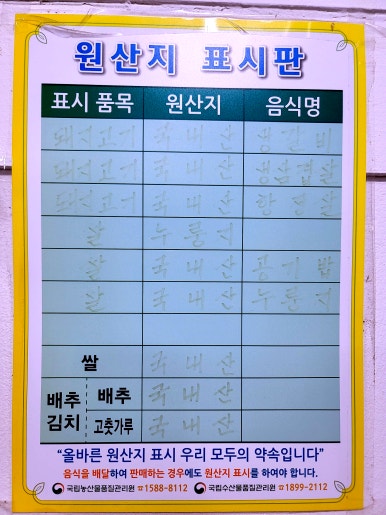 원산지 표시판
표시 품목 원산지 음식명
돼지고기 국내산 생갈비
돼지고기 국내산 생삼겹살
돼지고기 국내산 항정살
쌀 누룽지
쌀 국내산 공기밥
쌀 국내산 누룽지
쌀 국내산
배추김치 배추 국내산
고춧가루 국내산
“올바른 원산지 표시 우리 모두의 약속입니다”
음식을 배달하여 판매하는 경우에도 원산지 표시를 하여야 합니다.
국립농산물품질관리원 ☎1588-8112 국립수산물품질관리원 ☎1899-2112